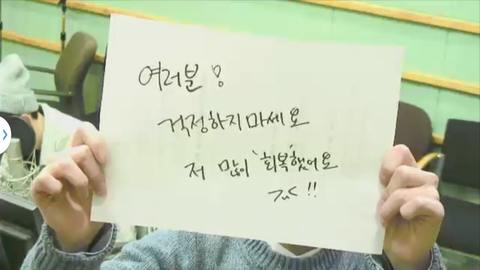 여러분
걱정하지마세요
저 많이 '회복'했어요
!!